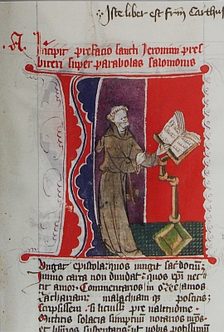 Iste liber est frm Carthus
A. Incipit prefacio sancti Jeronimi pres
biteri super parabolas salomonis
Iungat epistola quos iungit sacerdotiū
immo carta non dividat quos xp̄i nec
tit amor. Commentarios in osee amos
zachariam malachiam qꝫ poscitis
scripsissem si licuisset pre valetudine
Mittitis solacia sumptuū notarios nr̄os